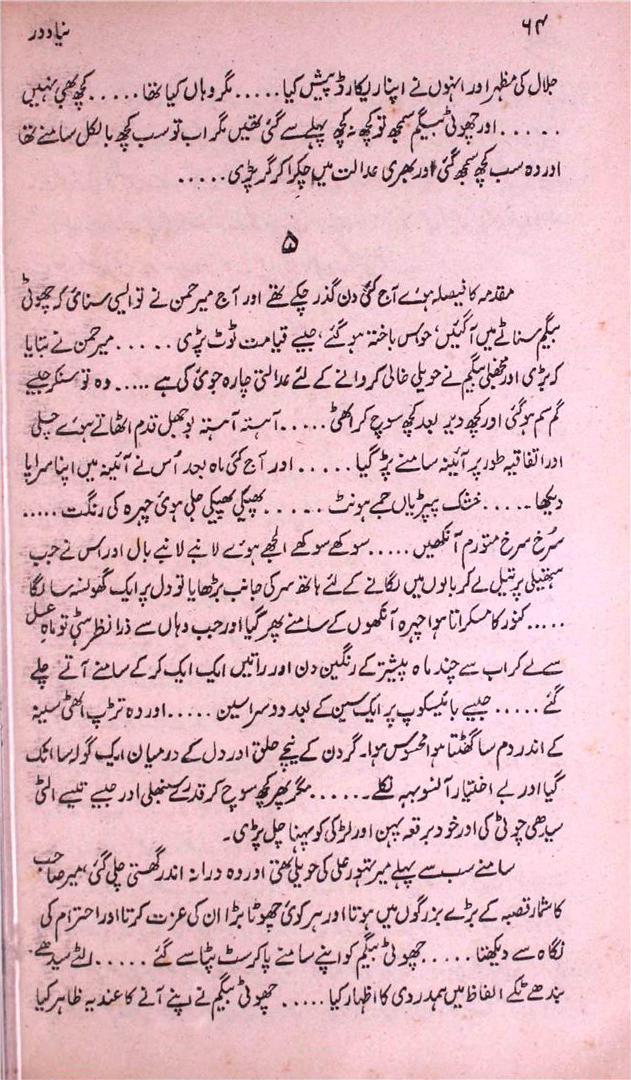 ۶۴
نیا دور
جلال کی مظہر اور انہوں نے اپنا ریکارڈ پیش کیا ..... مگر وہاں کیا تھا ..... کچھ بھی نہیں
..... اور چھوٹی بیگم سمجھ تو کچھ نہ کچھ پہلے سے گئی تھیں مگر اب تو سب کچھ بالکل سامنے تھا
اور وہ سب کچھ سمجھ گئی اور بھری عدالت میں چکرا کر گر پڑی .....
۵
مقدمہ کا فیصلہ ہوئے آج کئی دن گذر چکے تھے اور آج میر حمن نے تو ایسی سنائی کہ چھوٹی
بیگم سناٹے میں آ گئیں، حواس باختہ ہو گئے، جیسے قیامت ٹوٹ پڑی ..... میر حمن نے بتایا
کہ بڑی اور منجھلی بیگم نے حویلی خالی کروانے کے لئے عدالتی چارہ جوئی کی ہے ..... وہ تو سنکر جیسے
گم سم ہو گئی اور کچھ دیر بعد کچھ سوچ کر اٹھی ..... آہستہ آہستہ بوجھل قدم اٹھاتے ہوئے چلی
اور اتفاقیہ طور پر آئینہ سامنے پڑ گیا ..... اور آج کئی ماہ بعد اُس نے آئینہ میں اپنا سراپا
دیکھا ..... خشک پپڑیاں جمے ہونٹ ..... پھیکی پھیکی جلی ہوئی چہرہ کی رنگت .....
سُرخ سرخ متورم آنکھیں ..... سوکھے سوکھے الجھے ہوئے لانبے لانبے بال اور اس نے جب
ہتھیلی پر تیل لے کر بالوں میں لگانے کے لئے ہاتھ سر کی جانب بڑھایا تو دل پر ایک گھونسہ سا لگا
..... کنور کا مسکراتا ہوا چہرہ آنکھوں کے سامنے پھر گیا اور جب وہاں سے ذرا نظر ہٹی تو ماہِ عسل
سے لے کر اب سے چند ماہ پیشتر کے رنگین دن اور راتیں ایک ایک کر کے سامنے آتے چلے
گئے ..... جیسے بائیسکوپ پر ایک سین کے بعد دوسرا سین ..... اور وہ تڑپ اٹھی سینہ
کے اندر دم سا گھٹتا ہوا محسوس ہوا۔ گردن کے نیچے حلق اور دل کے درمیان ایک گولہ سا اٹک
گیا اور بے اختیار آنسو بہہ نکلے ..... مگر پھر کچھ سوچ کر قدرے سنبھلی اور جیسے تیسے الٹی
سیدھی چوٹی کی اور خود برقعہ پہن اور لڑکی کو پہنا چل پڑی۔
سامنے سب سے پہلے میر تہور علی کی حویلی تھی اور وہ درانہ اندر گھستی چلی گئی، میر صاحب
کا شمار قصبہ کے بڑے بزرگوں میں ہوتا اور ہر کوئی چھوٹا بڑا ان کی عزت کرتا اور احترام کی
نگاہ سے دیکھتا ..... چھوٹی بیگم کو اپنے سامنے پا کر سٹ پٹا سے گئے ..... الٹے سیدھے
بندھے ٹکے الفاظ میں ہمدردی کا اظہار کیا ..... چھوٹی بیگم نے اپنے آنے کا عندیہ ظاہر کیا